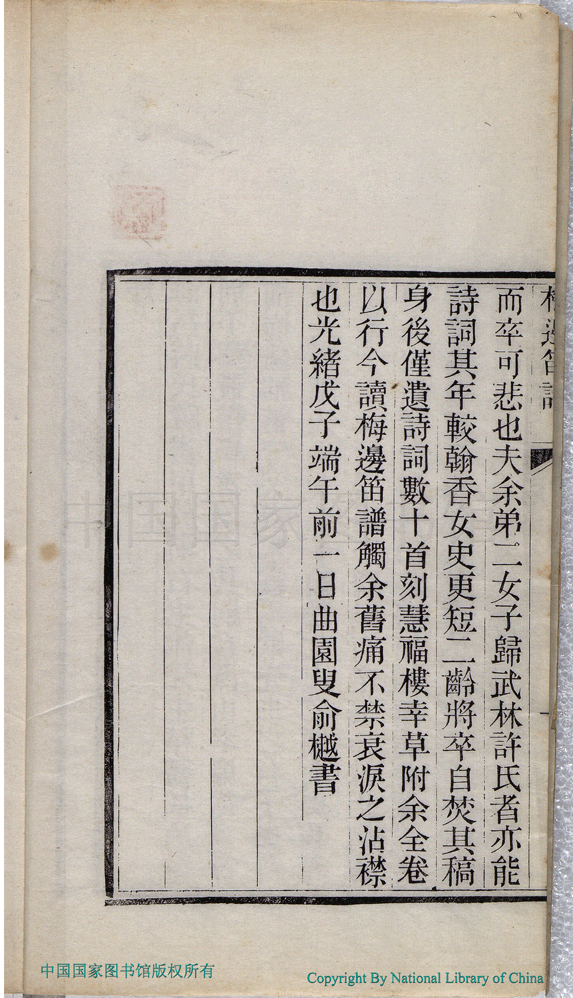 梅邊笛譜
而卒可悲也夫余弟二女子歸武林許氏者亦能
詩詞其年較翰香女史更短二齡將卒自焚其稿
身後僅遺詩詞數十首刻慧福樓幸草附余全卷
以行今讀梅邊笛譜觸余舊痛不禁衰淚之沾襟
也光緒戊子端午前一日曲園叟俞樾書
中国国家
中国国家图书馆版权所有
Copyright By National Library of China